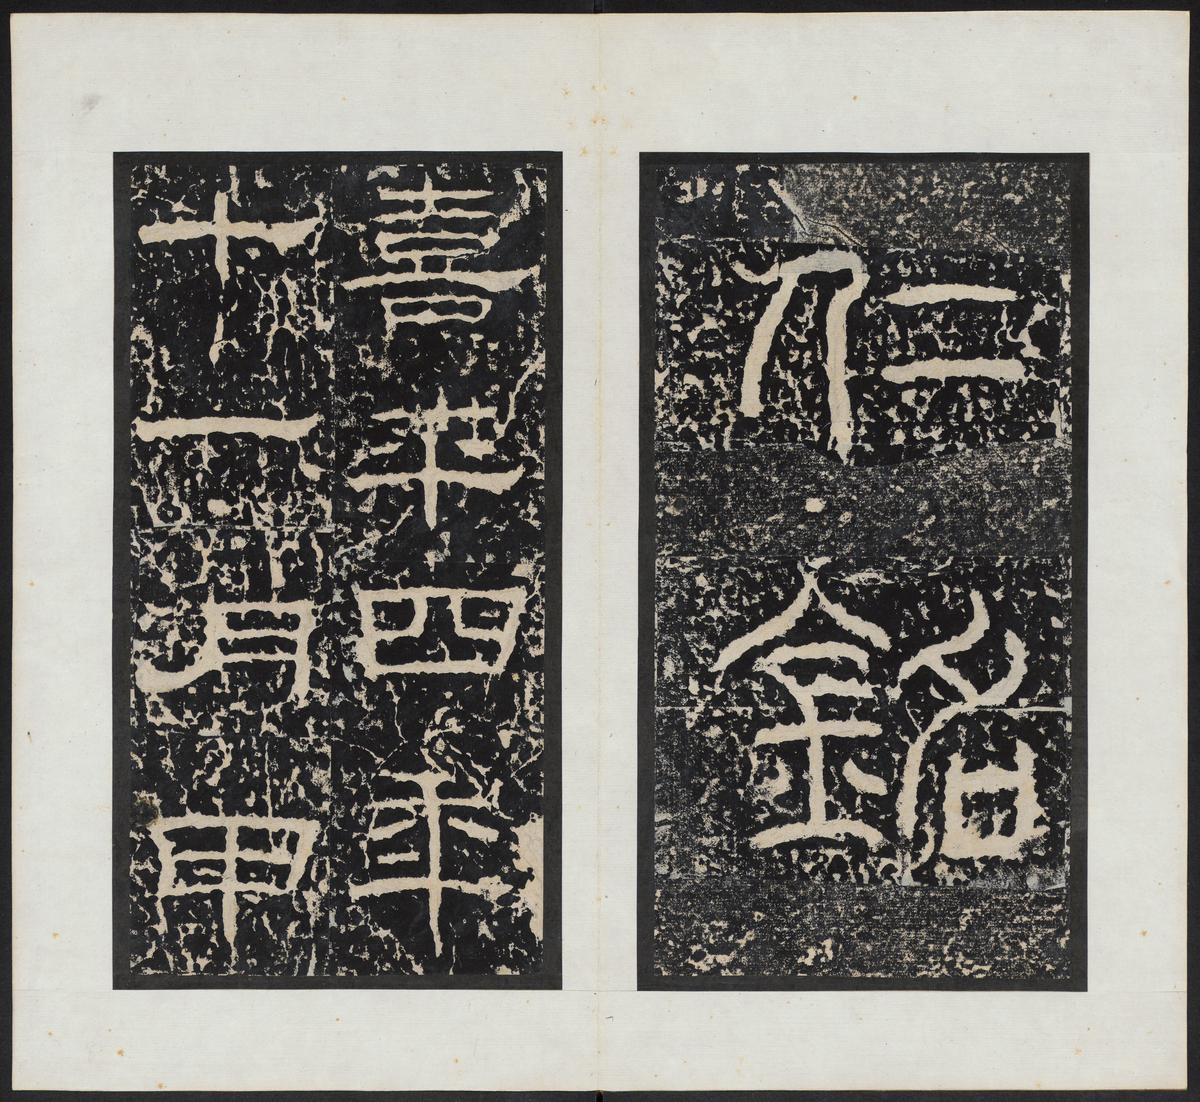 仁銘
喜平四年
十一月甲